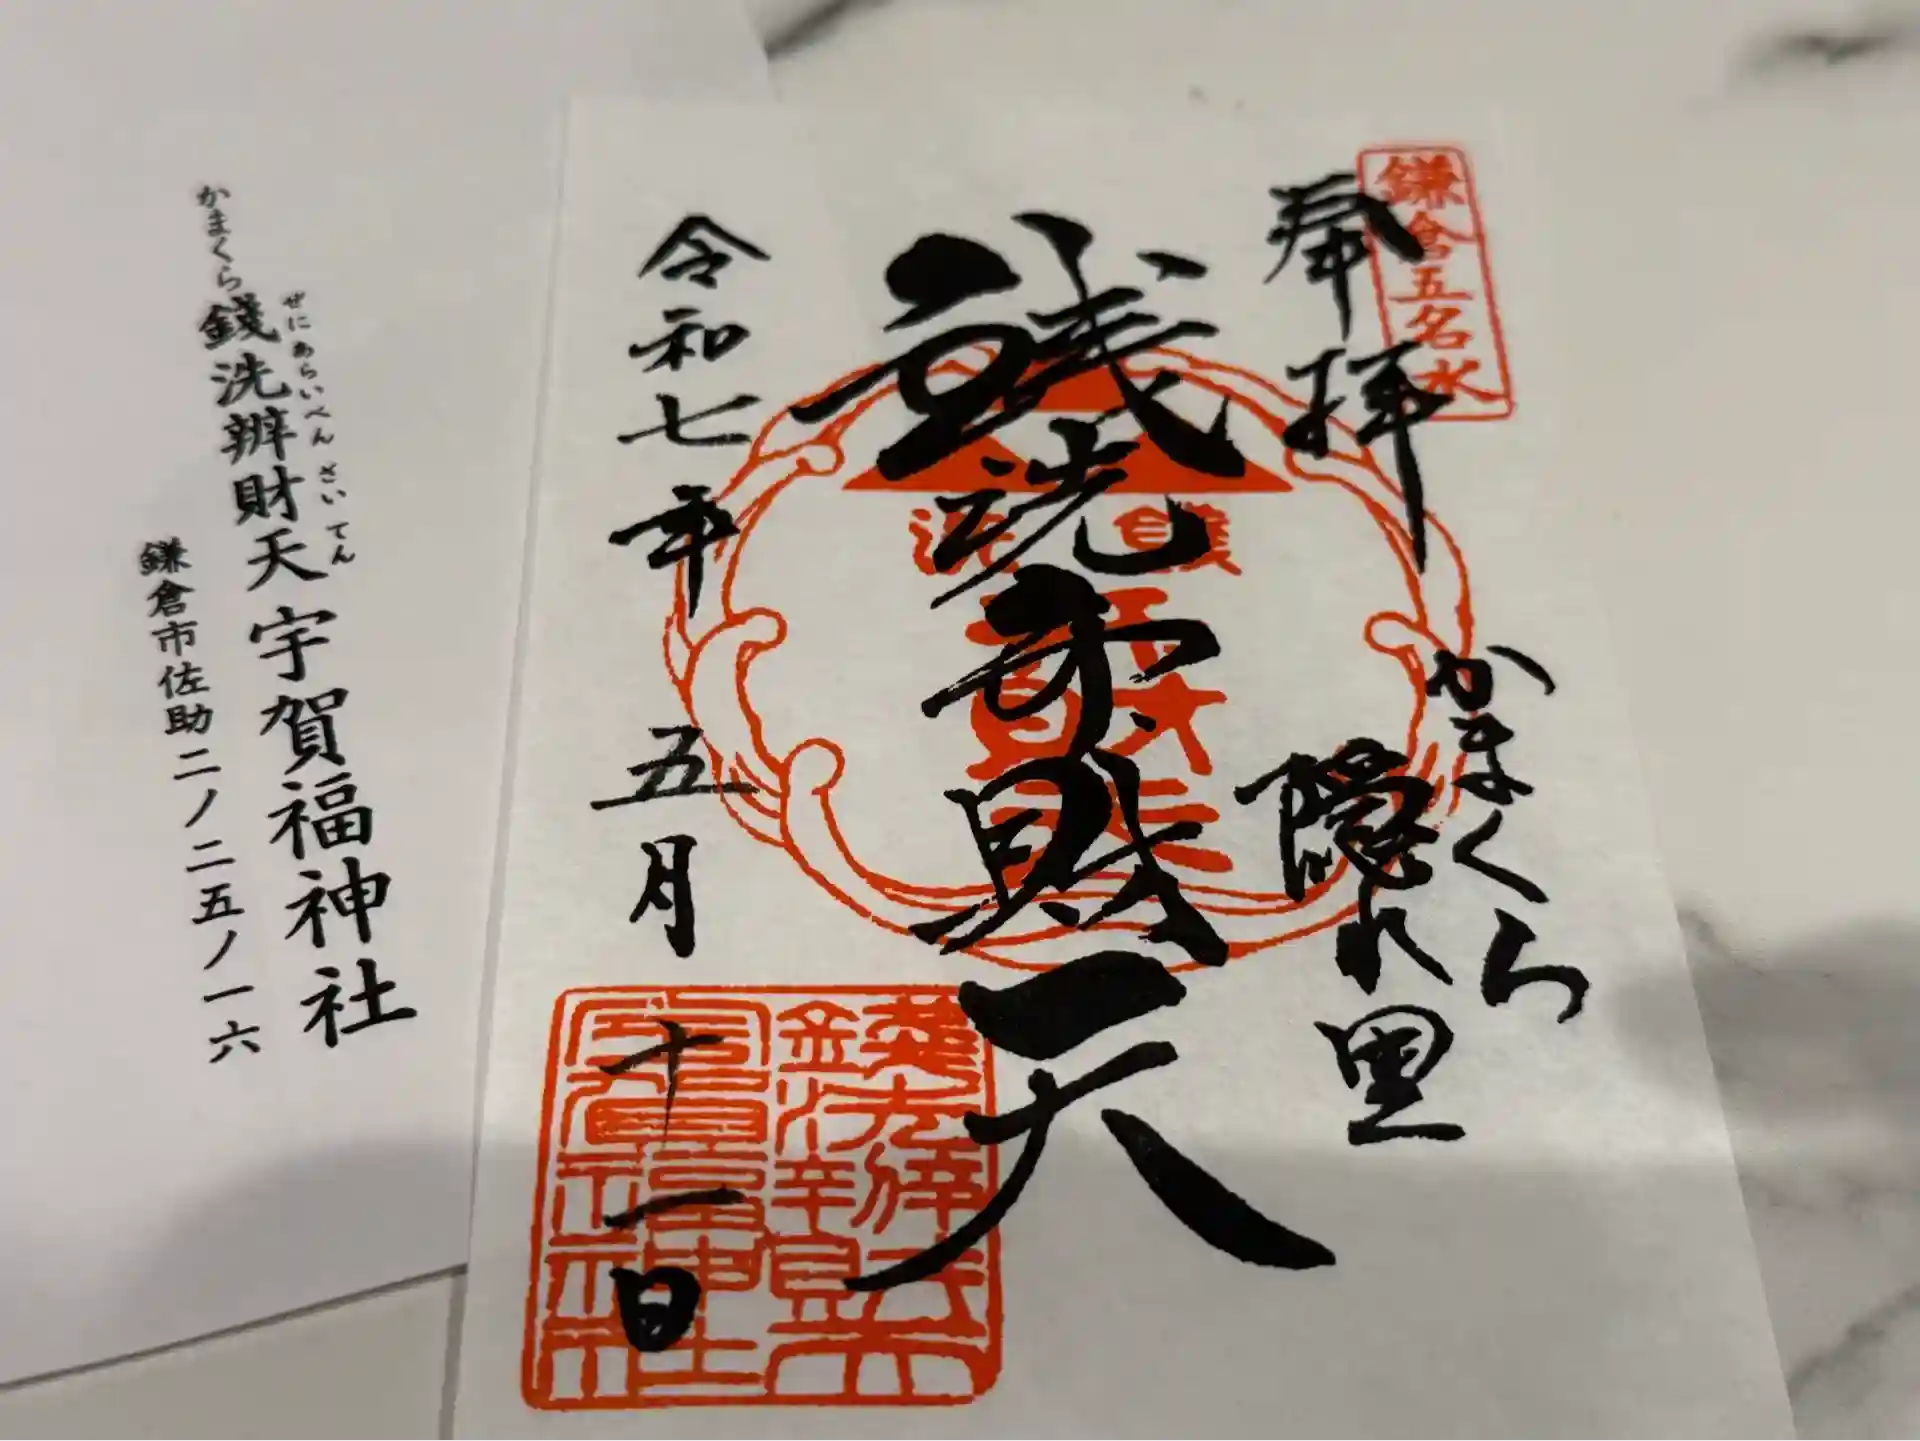 鎌倉五名水
奉拝
かまくら
隠れ里
銭洗弁財天
令和七年五月十一日
銭洗
錢洗辨財天
宇賀福神社
かまくら
ぜにあらいべんざいてん
錢洗辨財天宇賀福神社
鎌倉市佐助二ノ二五ノ一六